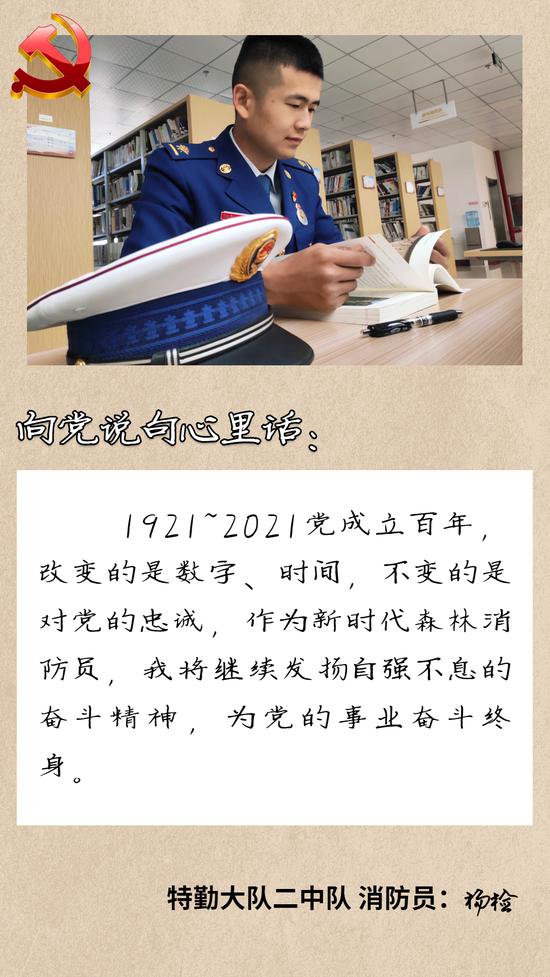 向党说句心里话：
1921~2021党成立百年，
改变的是数字、时间，不变的是
对党的忠诚，作为新时代森林消
防员，我将继续发扬自强不息的
奋斗精神，为党的事业奋斗终
身。
特勤大队二中队 消防员：杨检